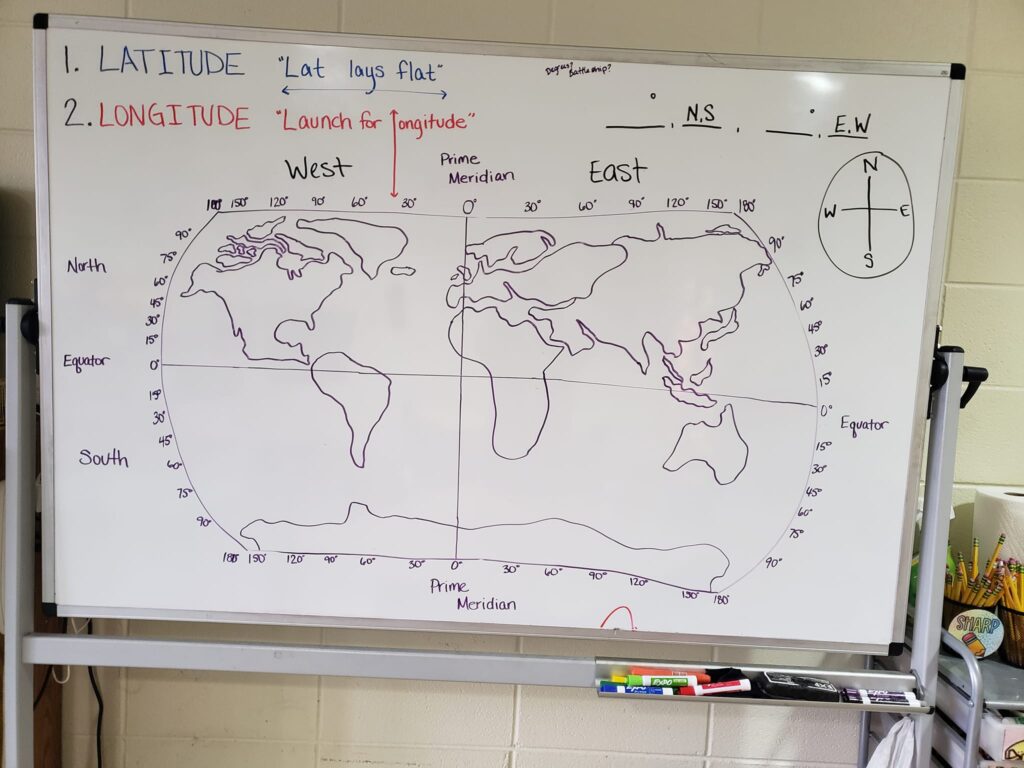 1. LATITUDE "Lat lays flat"
Degrees?
Battleship?
2. LONGITUDE "Launch for longitude"
____° . N.S , ____° . E.W
West
Prime
Meridian
East
N
W E
S
180° 150° 120° 90° 60° 30° 0° 30° 60° 90° 120° 150° 180°
North
90°
75°
60°
45°
30°
15°
Equator 0°
15°
30°
45°
South
60°
75°
90°
90°
75°
60°
45°
30°
15°
0° Equator
15°
30°
45°
60°
75°
90°
180° 150° 120° 90° 60° 30° 0° 30° 60° 90° 120° 150° 180°
Prime
Meridian
EXPO
EXPO
SHARP